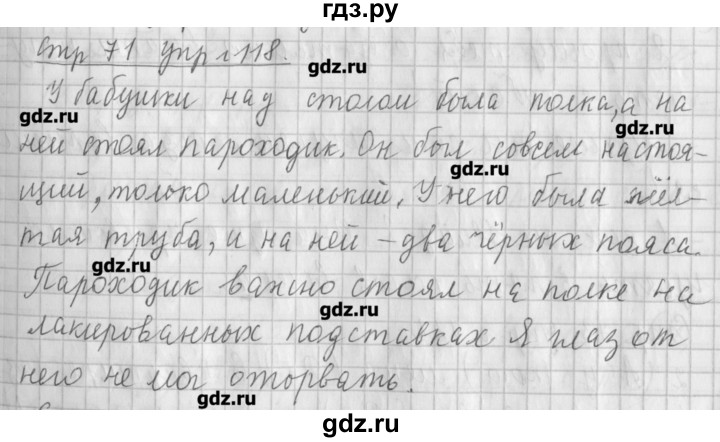 гдз.ру
стр 71 упр г 118.
gdz.ru
У бабушки над столом была полка, а на
gdz.ru
gdz.ru
ней стоял пароходик. Он был совсем настоя-
gdz.ru
щий, только маленький. У него была жёл-
тая труба, и на ней – два чёрных пояса.
gdz.ru
Пароходик важно стоял на полке на
gdz.ru
лакированных подставках Я глаз от
него не мог оторвать.
gdz.ru
gdz.ru